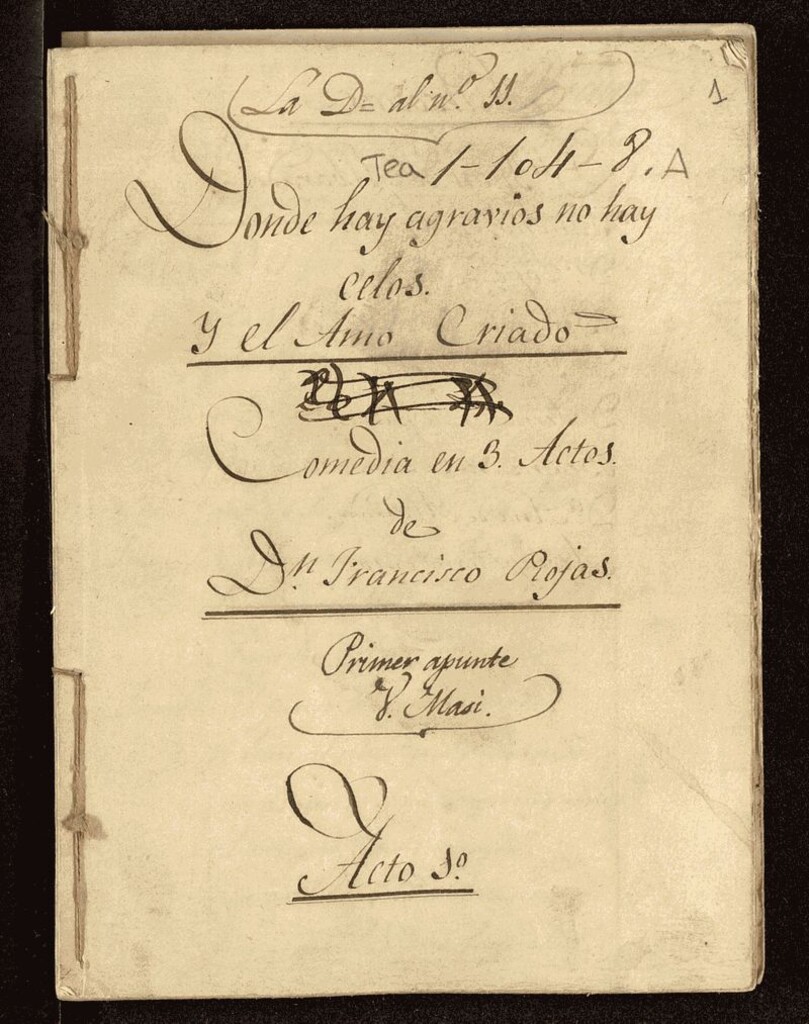 La D= al nº. 11.
1
Tea 1-104-8, A
Donde hay agravios no hay
celos.
Y el Amo Criado=
Comedia en 3. Actos.
de
Dn. Francisco Rojas.
Primer apunte
V. Masi.
Acto 1º